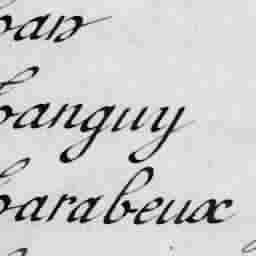 ban
banguy
barabeux